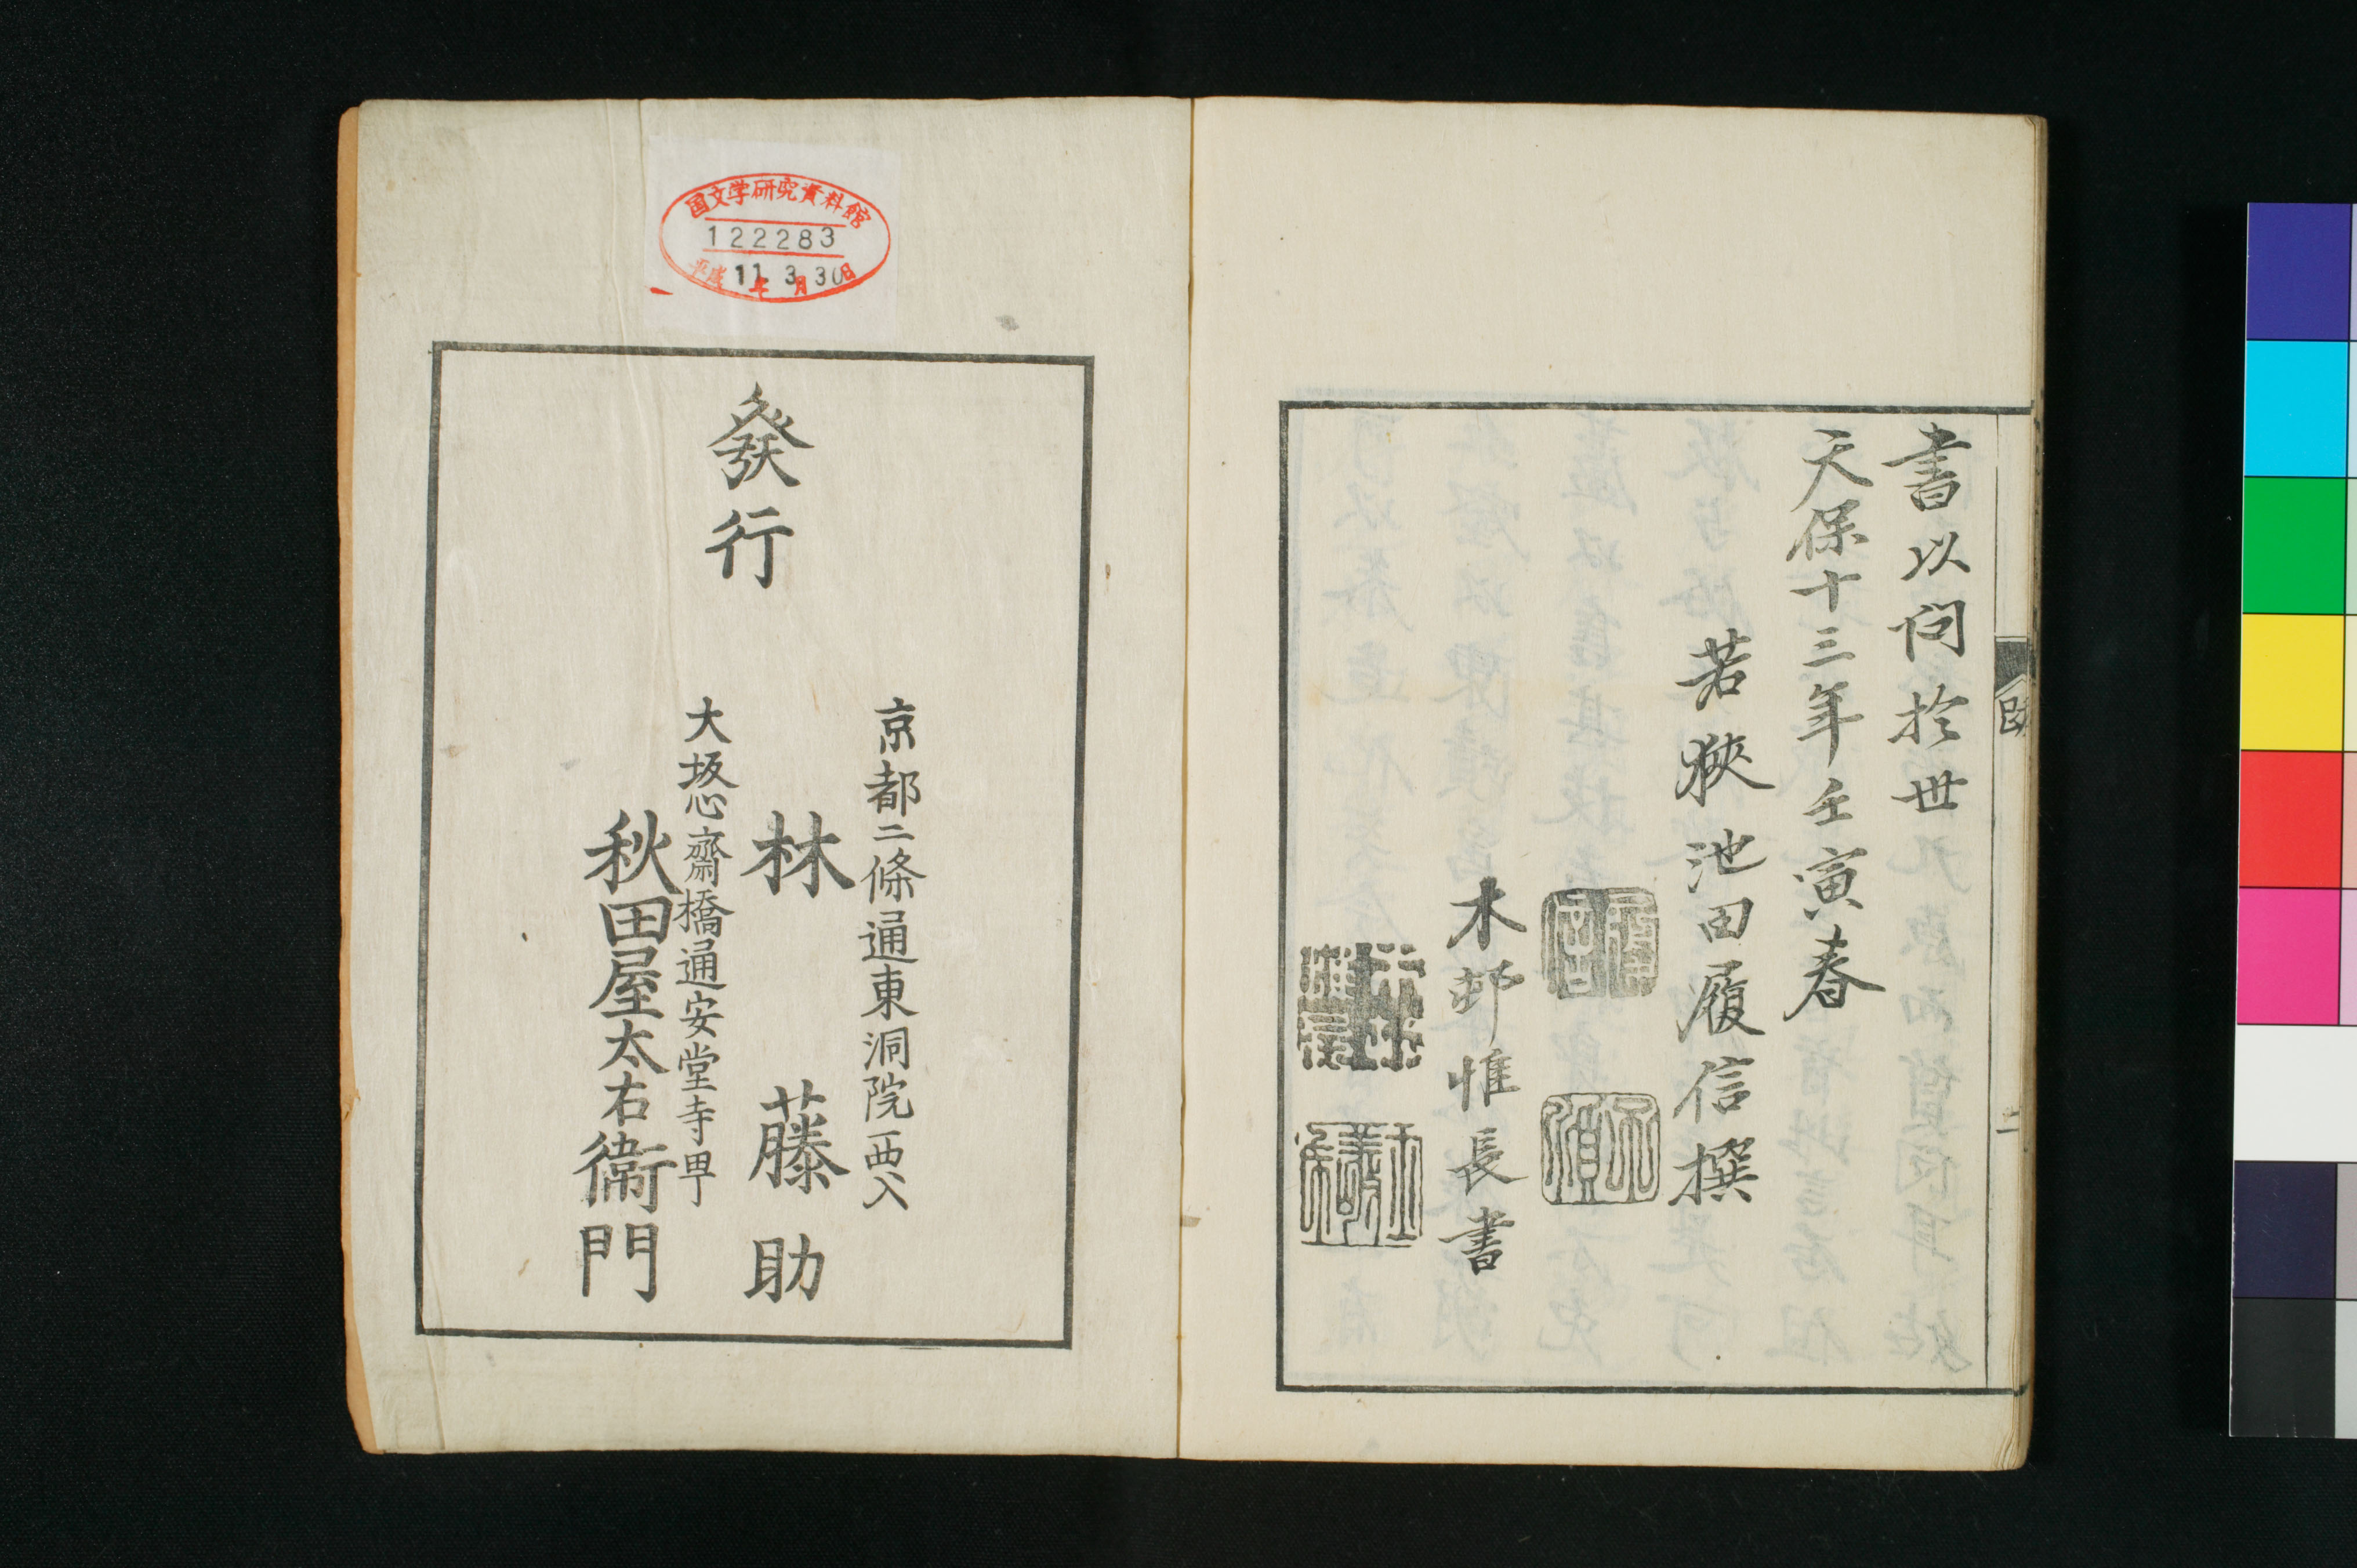 書以問於世
天保十三年壬寅春
若狹池田履信撰
木邨惟長書
二
国文学研究資料館
122283
平成11年3月30日
發行
京都二條通東洞院西入
林藤助
大坂心齋橋通安堂寺町
秋田屋太右衞門